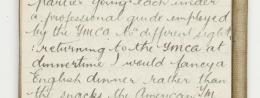 parties going each under
a professional guide employed
by the YMCA to different sights
returning to the YMCA at
dinnertime I would fancy a
English dinner rather than
the snacks the American YM